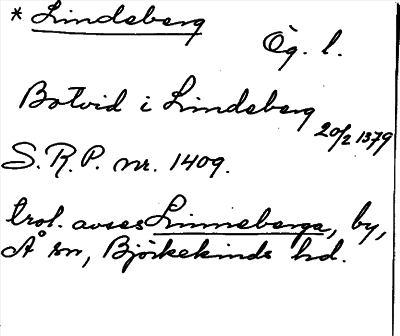 * Lindeberg
Ög. l.
Botvid i Lindeberg
20/2 1379
S.R.P. nr. 1409.
trol. avses Linneberga, by,
Å sn, Björkekinds hd.